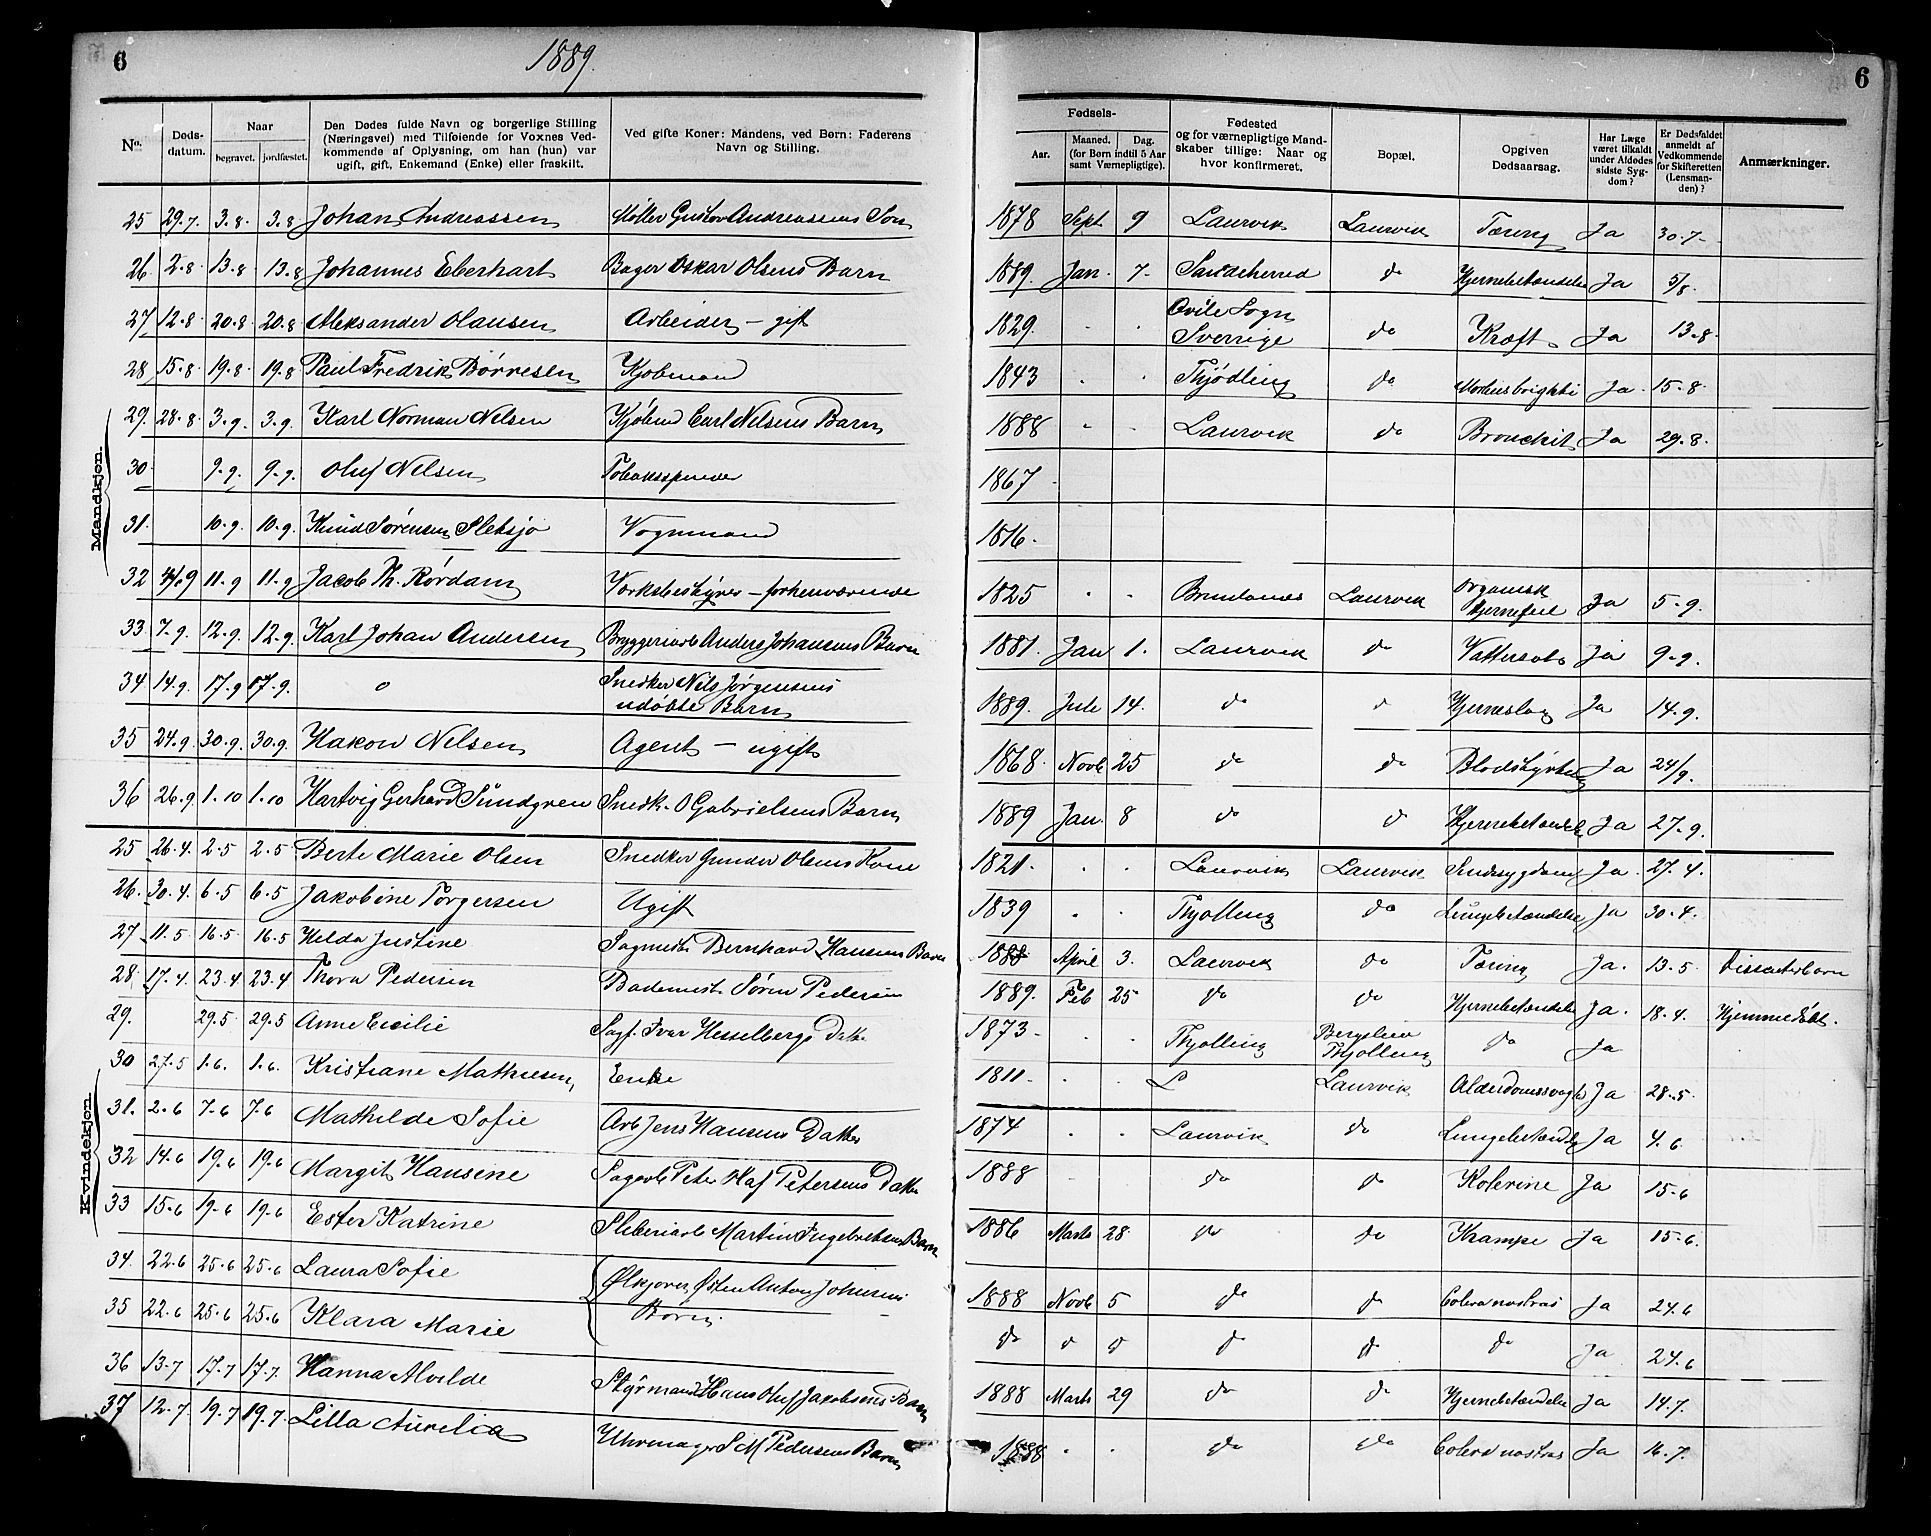 6
1889.
6
No.
Døds-datum.
Naar
begravet.
jordfæstet.
Den Dødes fulde Navn og borgerlige Stilling (Næringsvei) med Tilføiende for Voxnes Vedkommende af Oplysning, om han (hun) var ugift, gift, Enkemand (Enke) eller fraskilt.
Ved gifte Koner: Mandens, ved Børn: Faderens Navn og Stilling.
Fødsels-
Aar.
Maaned. Dag.
(for Børn indtil 5 Aar samt Værnepligtige).
Fødested og for værnepligtige Mandskaber tillige: Naar og hvor konfirmeret.
Bopæl.
Opgiven Dødsaarsag.
Har Læge været tilkaldt under Afdødes sidste Sygdom?
Er Dødsfaldet anmeldt af Vedkommende for Skifteretten (Lensmanden)?
Anmærkninger.
Mandkjøn.
25 29.7. 3.8. 3.8 Johan Andreassen Møller Gustav Andreasens Søn 1878 Sept 9 Laurvik Laurvik Tæring Ja 30.7
26 2.8. 13.8 13.8 Johannes Eberhart Bager Oskar Olsens Barn 1889. Jan. 7. Sandeherred do Hjernebetændelse Ja 5/8
27 12.8 20.8. 20.8 Aleksander Olausen Arbeider - gift 1829. . . Qvile Sogn Sverrige do Kræft Ja 13.8
28 15.8 19.8. 19.8 Paul Fredrik Børresen Kjøbmand 1843 . . Thjødling do Ja 15.8
29. 28.8. 3.9. 3.9. Karl Norman Nilsen Kjøbmd Carl Nilsens Barn 1888 . . Laurvik do Bronchit Ja 29.8.
30 9.9. 9.9. Oluf Nilsen Tobaksspinder 1867
31. 10.9. 10.9. Knud Sørensen Vognmand 1816.
32 4/9 11.9 11.9 Jacob Th. Rørdam Værksbestyrer - forhenværende 1825 . . Brunlanes Laurvik Organisk Hjertefeil Ja 5.9.
33 7.9. 12.9. 12.9. Karl Johan Andersen Bryggeriarb Anders Johansens Barn 1881. Jan 1. Laurvik do Vattersot Ja 9.9.
34 14.9. 17.9 17.9. o Snedker Nils Jørgensens udøbte Barn 1889. Jule 14. do d Ja 14.9.
35 24.9. 30.9. 30.9. Hakon Nilsen Agent - ugift 1868. Novb 25 do do Blodstyrtning Ja 24/9.
36 26.9 1.10 1.10 Hartvig Gerhard Sundgren Snedk. O Gabrielsens Barn 1889 Jan. 8 do d Hjernebetændels Ja 27.9.
Kvindekjøn.
25 26.4. 2.5 2.5 Berte Marie Olsen Snedker Gunder Olsens Kone 1821. . . Laurvik Laurvik Sindssygdom Ja 27.4.
26. 30.4. 6.5 6.5 Jakobine Torgersen Ugift 1839 . . Thjølling do Lungebetændelse Ja 30.4.
27 11.5 16.5. 16.5 Helda Justine Sagmester Bernhard Hansens Barn 1888 April 3. Laurvik do Tæring Ja. 13.5. Dissenterbarn
28. 17.4. 23.4. 23.4 Thora Pedersen Bademest. Søren Pedersen 1889. Feb 25 do do Hjernebetændels Ja. 18.4. Hjemmedøbt.
29. 29.5 29.5 Anne Cicilie Sagf. Ivar Hesselbergs Datter 1873. . . Thjølling Bergelien Thjølling do Ja
30 27.5 1.6. 1.6. Kristiane Mathiesen, Enke 1811 . . L Laurvik Alderdomssvagh Ja 28.5.
31. 2.6 7.6 7.6 Mathilde Sofie Arb Jens Hansens Datter 1874 . . Laurvik do Lungebetændelse Ja 4.6.
32 14.6 19.6 19.6 Margit Hansine Sagarb Peter Olaf Petersens Datter 1888 . . do do Kolerine Ja 15.6
33 15.6 19.6 19.6 Ester Katrine Sliberiarb Martin Ingebretsens Barn 1886 Marts 28 do do Krampe Ja 15.6.
34. 22.6 25.6 25.6 Laura Sofie Østen Anton Johnsens Børn 1888 Novb 5 do do Colera nostras Ja 24.6
35 22.6 25.6 25.6 Klara Marie do d d d do do Ja 24.6
36 13.7 17.7 17.7. Hanna Alvilde Styrmand Hans Oluf Jakobsens Barn 1888 Marts 29 do do Hjernebetændelse Ja 14.7.
37 12.7. 19.7 19.7. Lilla Aurelia Uhrmager S M Pedersens Barn 1888 . . do do Colera nostras Ja 16.7.